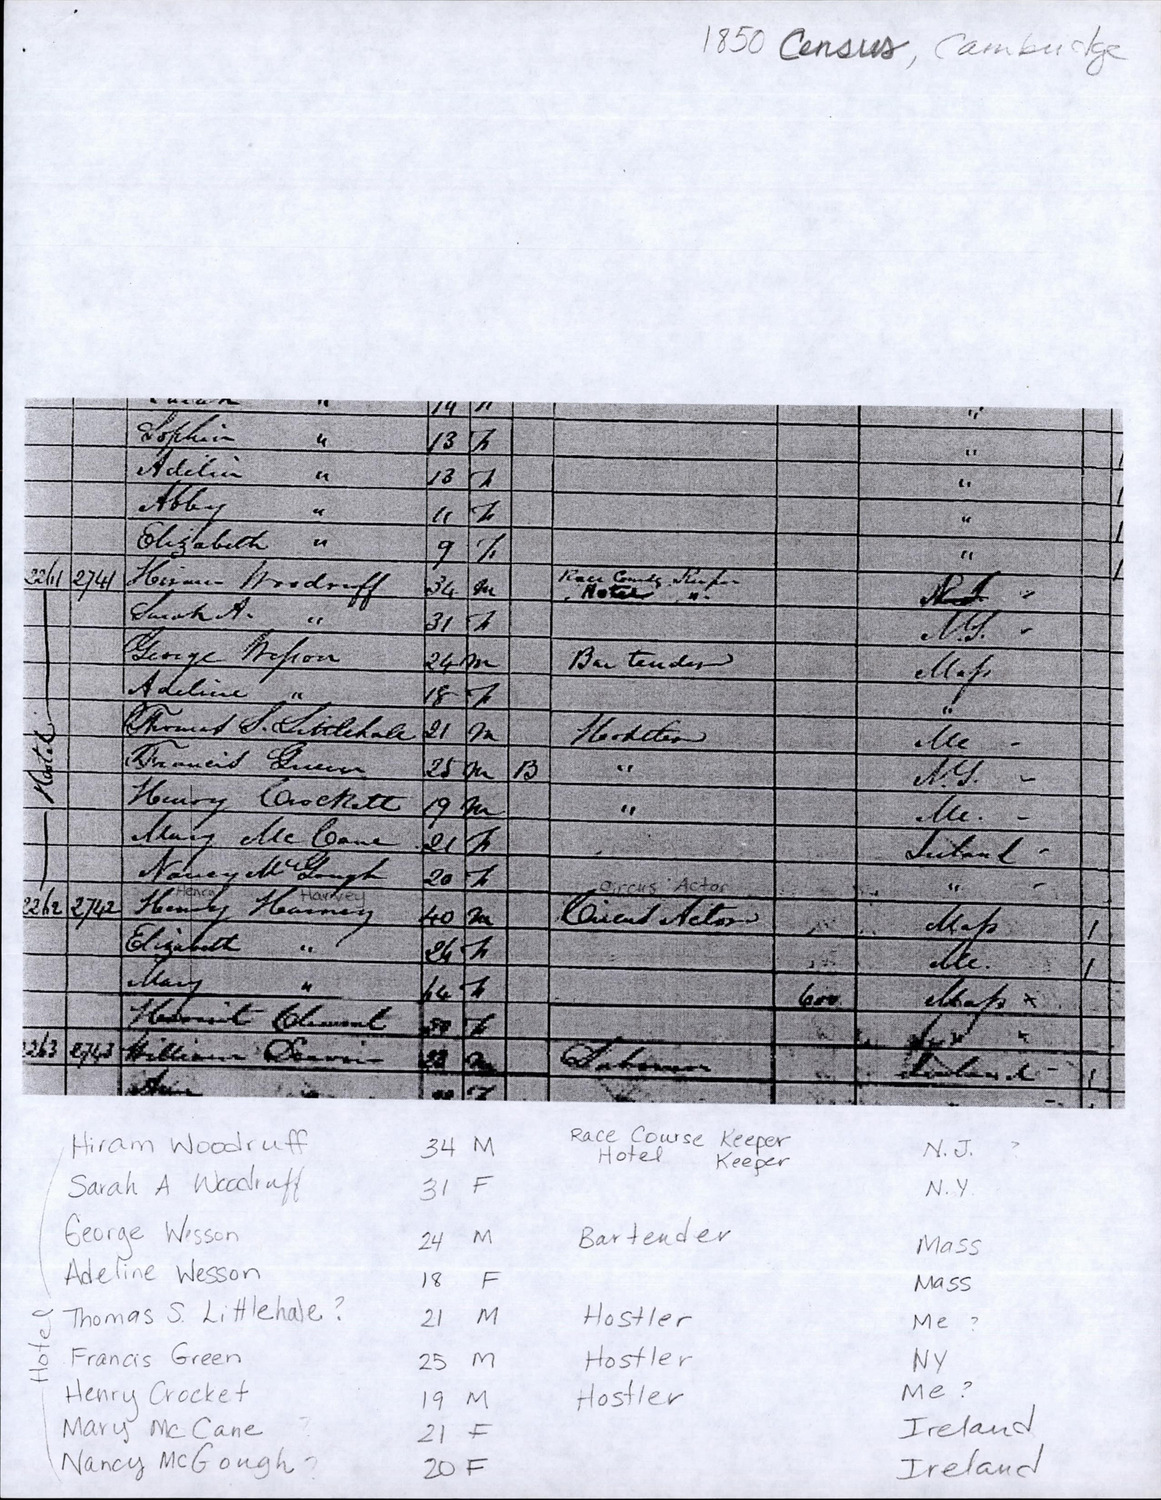 1850 Census, Cambridge
" 14 "
Sophia " 13 F "
Adelin " 13 F "
Abby " 11 F "
Elizabeth " 9 F "
2261 2741 Hiram Woodruff 34 M Race Course Keeper
Hotel "
Sarah A. " 31 F N.Y.
George Wesson 24 M Bar tender Mass
Adeline " 18 F "
Thomas S. Littlehale 21 M Hostler Me
Hotel
Francis Green 25 M B " N.Y.
Henry Crockett 19 M " Me.
Mary Mc Cane 21 F Ireland
Nancy McGough 20 F "
Henry Harvey Circus Actor
2262 2742 Henry Harvey 40 M Circus Actor Mass 1
Elizabeth " 26 F Me. 1
Mary " 64 F 600 Mass x
Harriet F "
2263 2743 William M Laborer Ireland 1
Ann F
Hiram Woodruff 34 M Race Course Keeper N.J. ?
Hotel Keeper
Sarah A Woodruff 31 F N.Y.
George Wesson 24 M Bartender Mass
Adeline Wesson 18 F Mass
Thomas S. Littlehale ? 21 M Hostler Me ?
Hotel
Francis Green 25 M Hostler NY
Henry Crocket 19 M Hostler Me ?
Mary McCane ? 21 F Ireland
Nancy McGough ? 20 F Ireland